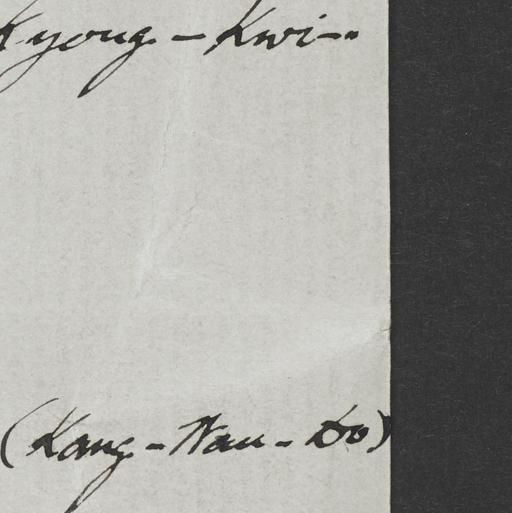 Kyong-Kwi-
(Kang-Nau-Do)